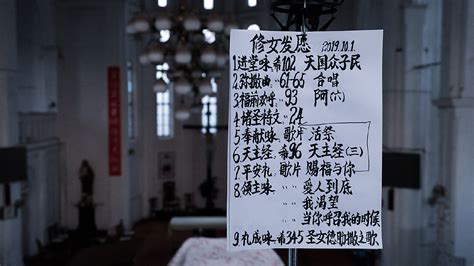 修女发愿 2019.10.1.
1.进堂咏.希102 天国众子民
2.弥撒曲.〃61-65 合唱
3.福前欢呼.〃93 阿(六)
4.诸圣祷文.〃24
5.奉献咏.歌片 活祭
6.天主经.希96 天主经(三)
7.平安礼.歌片 赐福与你
8.领主咏.〃〃 爱人到底
〃〃 我渴望
〃〃 当你呼召我的时候
9.礼成咏.希345 圣女德肋撒之歌